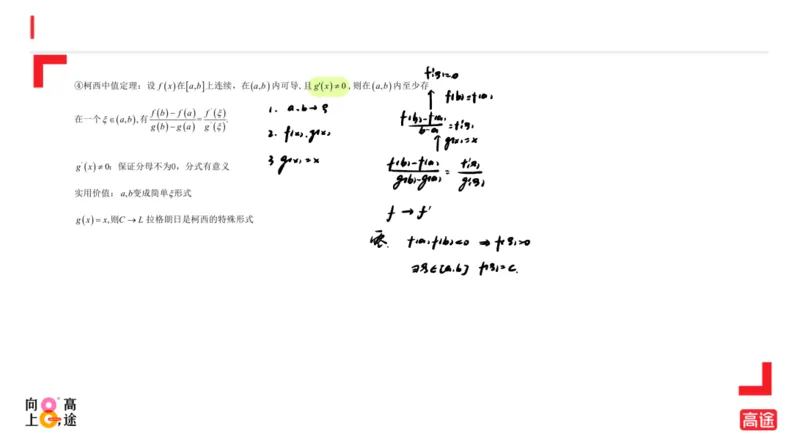 ④柯西中值定理：设 f(x)在[a,b]上连续，在(a,b)内可导,且g'(x)≠0,则在(a,b)内至少存
在一个ξ∈(a,b),有 f(b)-f(a)/g(b)-g(a) = f'(ξ)/g'(ξ).
g'(x)≠0：保证分母不为0，分式有意义
实用价值：a,b变成简单ξ形式
g(x)=x,则C→L 拉格朗日是柯西的特殊形式
1. a.b→ξ
2. f(x).g(x)
3 g(x)=x
f'(ξ)=0
↑ f(b)=f(a)
f(b)-f(a)/b-a = f'(ξ)
↑ g(x)=x
f(b)-f(a)/g(b)-g(a) = f'(ξ)/g'(ξ)
f → f'
f(a)f(b)<0 ⇒ f(ξ)=0
∃ξ∈[a.b] f(ξ)=c.
向上
高途
高途